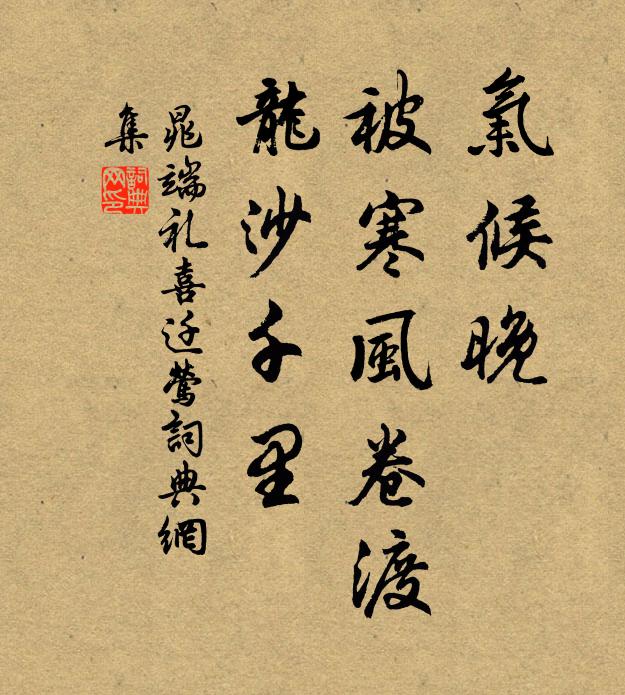 氣候晚
被寒風卷渡
龍沙千里
晁端礼喜迁鶯詞典網
集
詞典网印